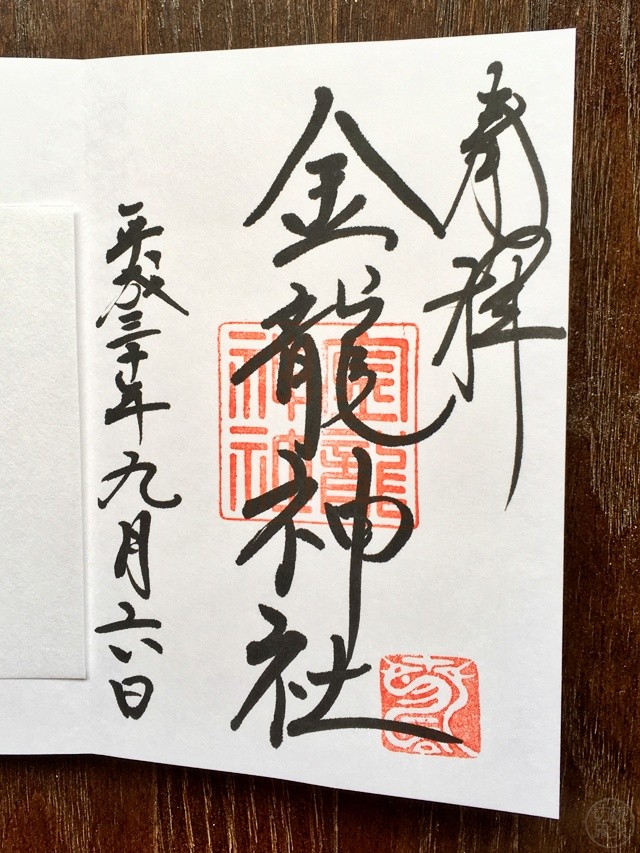 奉拝
金龍神社
金龍神社
平成三十年九月六日